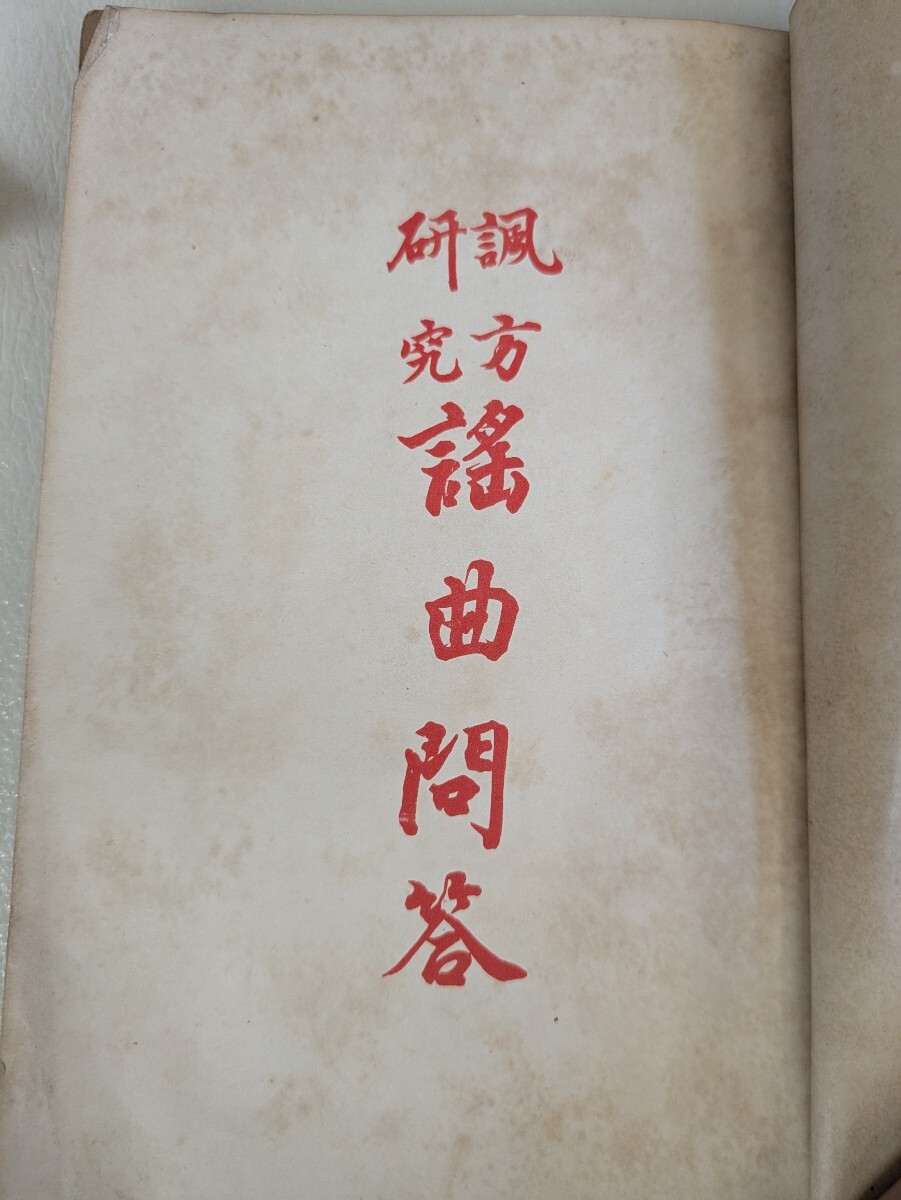 諷方
研究
謠曲問答